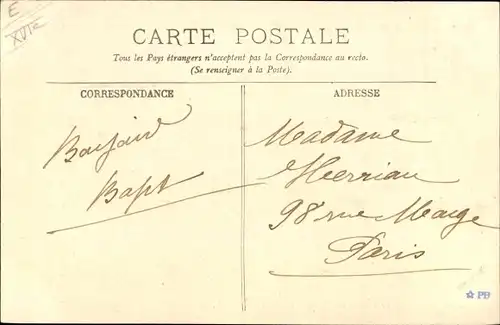 E
XVIe
CARTE POSTALE
Tous les Pays étrangers n'acceptent pas la Correspondance au recto.
(Se renseigner à la Poste).
CORRESPONDANCE
ADRESSE
Madame
98 rue
Paris
PB